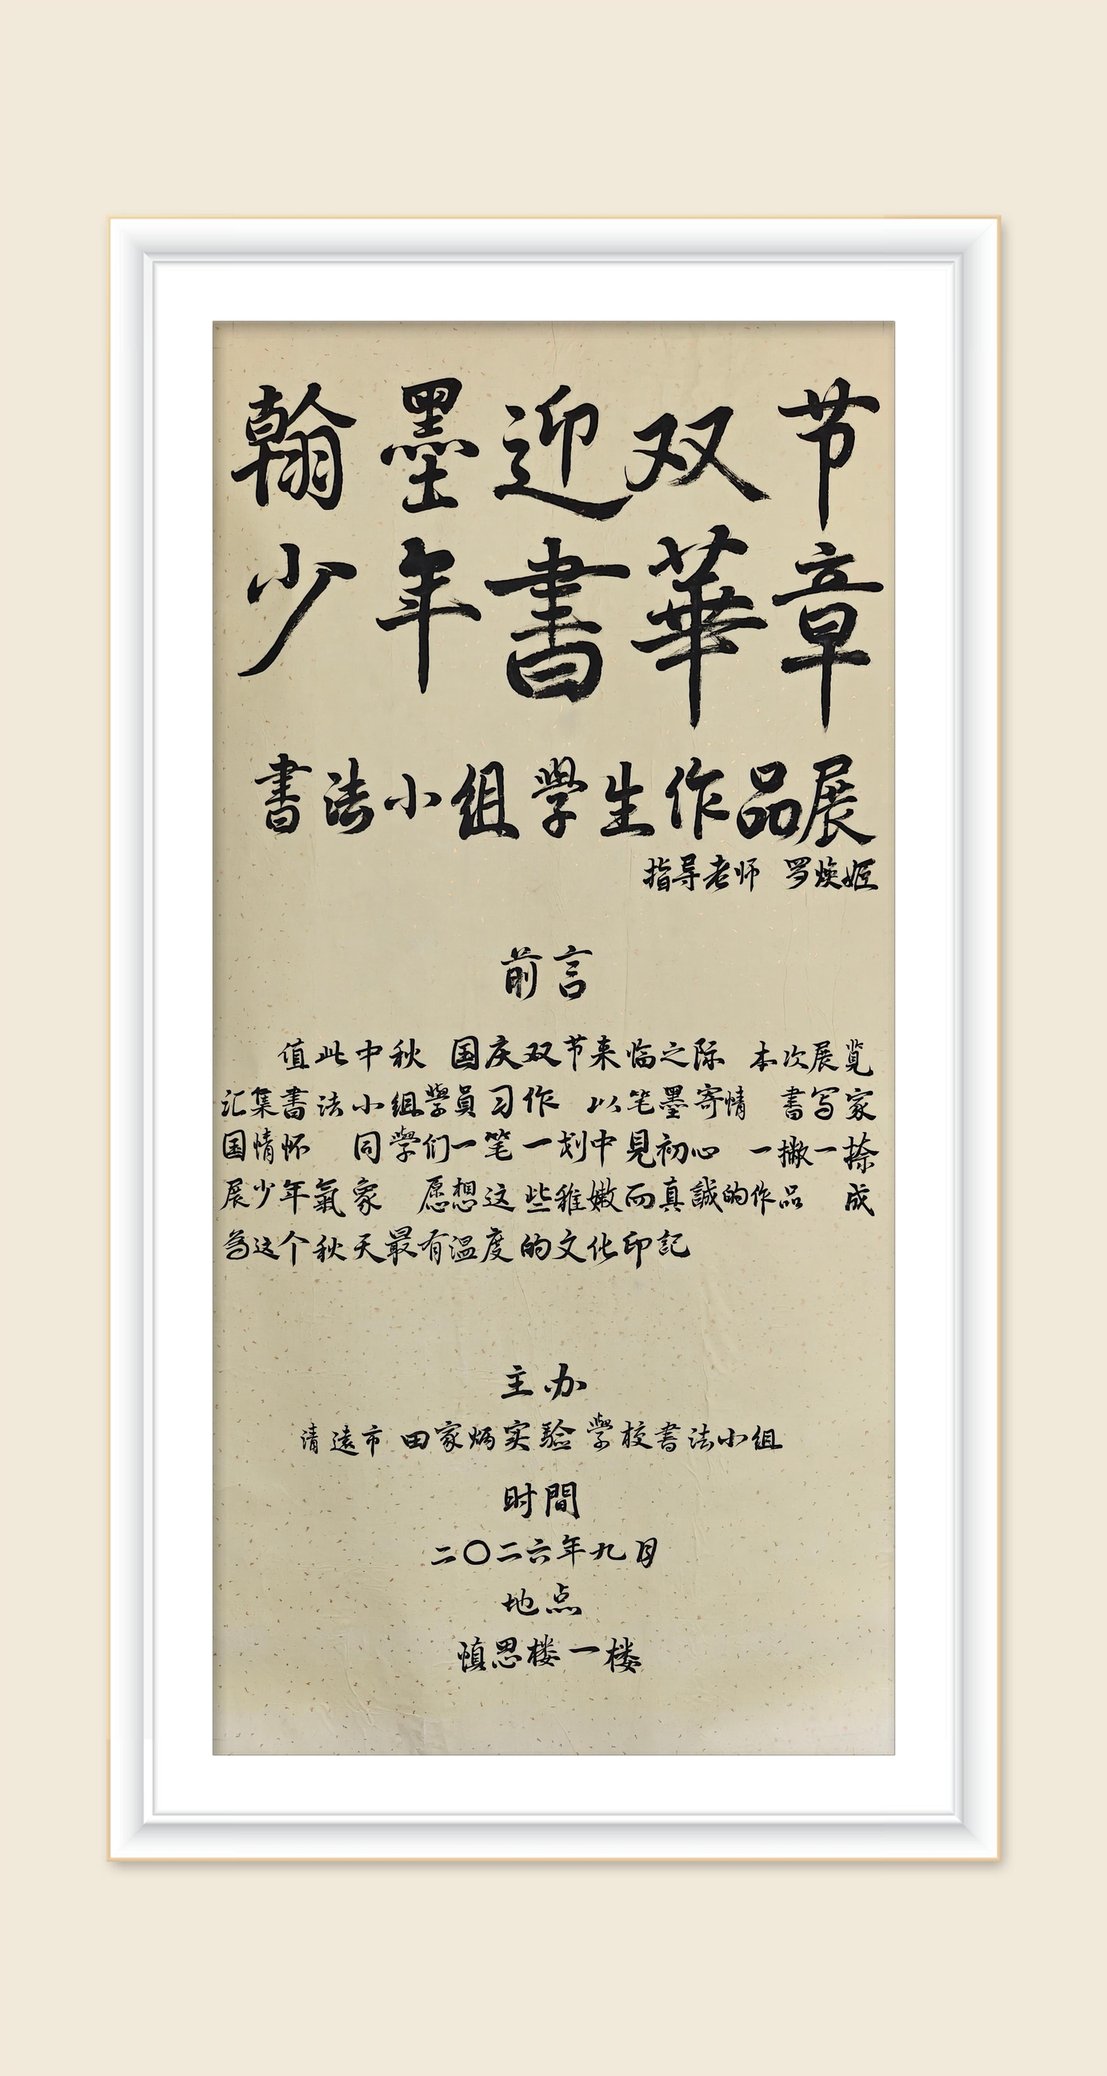 翰墨迎双节
少年書華章
書法小组學生作品展
指导老师 罗焕姬
前言
值此中秋 国庆双节来临之际 本次展览
汇集書法小组學員习作 以笔墨寄情 書写家
国情怀 同學们一笔一划中見初心 一撇一捺
展少年氣家 愿想这些稚嫩而真誠的作品 成
為这个秋天最有温度的文化印記
主办
清遠市田家炳实驗學校書法小组
时間
二〇二六年九月
地点
慎思楼一楼